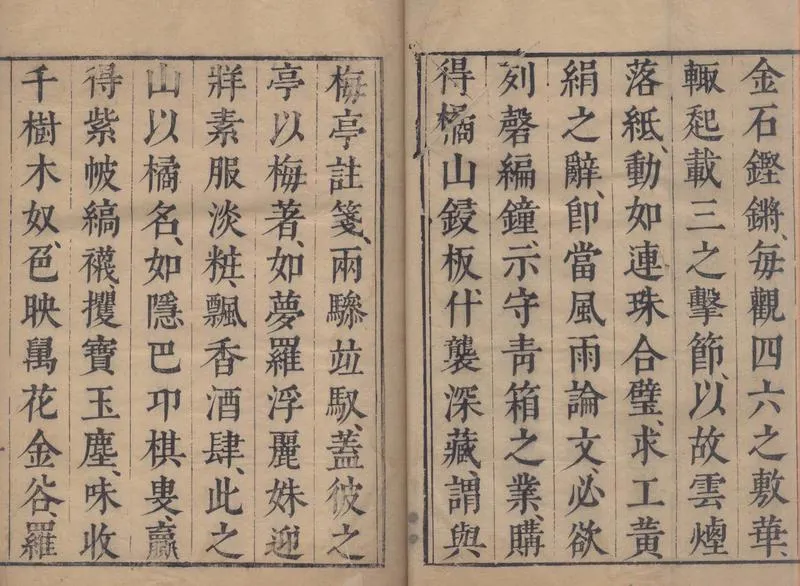 金石鏗鏘、每觀四六之敷華、
輙起載三之擊節、以故雲煙
落紙、動如連珠合璧、求工黄
絹之辭、即當風雨論文、必欲
列磬編鐘、示守青箱之業、購
得橘山鋟板、什襲深藏、謂與
梅亭註箋、兩驂竝馭、蓋彼之
亭以梅著、如夢羅浮麗姝迎
牂素服淡粧、飄香酒肆、此之
山以橘名、如隱巴卭棋叟、贏
得紫帔縞襪、攫寶玉塵、味收
千樹木奴、色映萬花金谷、羅